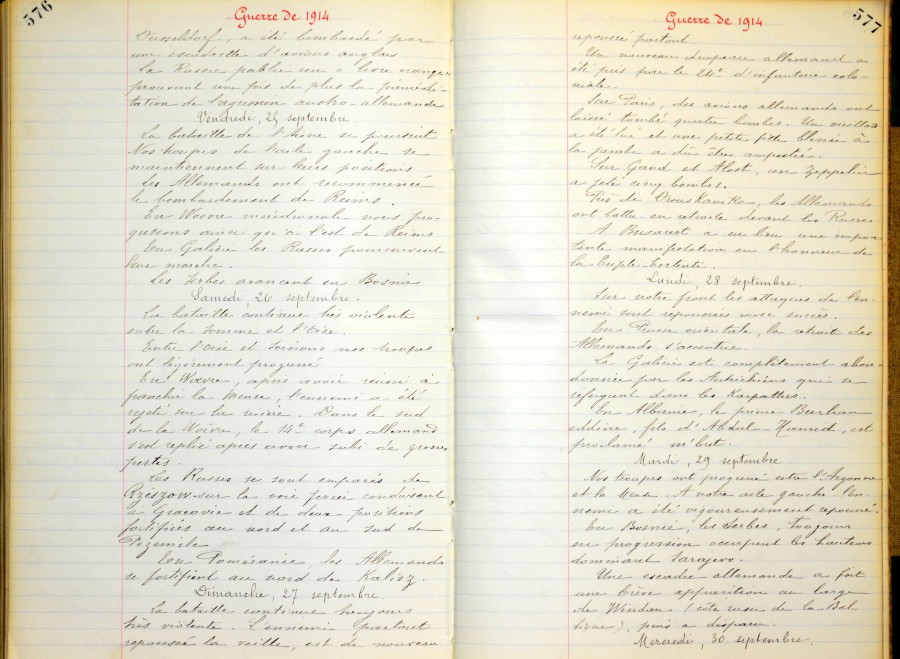 576
Guerre de 1914
Dusseldorf, a été bombardé par
une escadrille d'avions anglais
La Russie publie un « livre orange »
prouvant une fois de plus la prémédi-
tation de l'agression austro-allemande
Vendredi, 25 septembre.
La bataille de l'Aisne se poursuit
Nos troupes de l'aile gauche se
maintiennent sur leurs positions
Les Allemands ont recommencé
le bombardement de Reims.
En Woëvre méridionale nous pro-
gressons ainsi qu'à l'est de Reims
En Galicie les Russes poursuivent
leur marche.
Les Serbes avancent en Bosnie
Samedi, 26 septembre.
La bataille continue très violente
entre la Somme et l'Oise.
Entre l'Oise et Soissons nos troupes
ont légèrement progressé
En Woëvre, après avoir réussi à
franchir la Meuse, l'ennemi a été
rejeté sur la rivière. Dans le sud
de la Woëvre, le 14e corps allemand
s'est replié après avoir subi de grosses
pertes.
Les Russes se sont emparés de
Rzeszow sur la voie ferrée conduisant
à Gracovie et de deux positions
fortifiées au nord et au sud de
Pzemile
En Poméranie, les Allemands
se fortifient au nord de Kalisz.
Dimanche, 27 septembre.
La bataille continue toujours
très violente. L'ennemi partout
repoussé la veille, est de nouveau
577
Guerre de 1914
repoussé partout.
Un nouveau drapeau allemand a
été pris par le 24e d'infanterie colo-
niale.
Sur Paris, des avions allemands ont
laissé tombé quatre bombes. Un vieillard
a été tué et une petite fille blessée à
la jambe a dû être amputée.
Sur Gand et Alost, un zeppelin
a jeté cinq bombes.
Près de Drouskeniki, les Allemands
ont battu en retraite devant les Russes.
A Bucarest a eu lieu une impor-
tante manifestation en l'honneur de
la Triple-Entente.
Lundi, 28 septembre.
Sur notre front les attaques de l'en-
nemi sont repoussées avec succès.
En Prusse orientale, la retraite des
Allemands s'accentue.
La Galicie est complètement aban-
donnée par les Autrichiens qui se
réfugient dans les Karpathes.
En Albanie, le prince Burhan-
eddine, fils d'Abdul-Hamid, est
proclamé m'bret.
Mardi, 29 septembre.
Nos troupes ont progressé entre l'Argonne
et la Meuse. A notre aile gauche l'en-
nemi a été vigoureusement repoussé.
En Bosnie, les Serbes, toujours
en progression occupent les hauteurs
dominant Sarajevo.
Une escadre allemande a fait
une brève apparition au large
de Windau (côte russe de la Bal-
tique), puis a disparu.
Mercredi, 30 septembre.